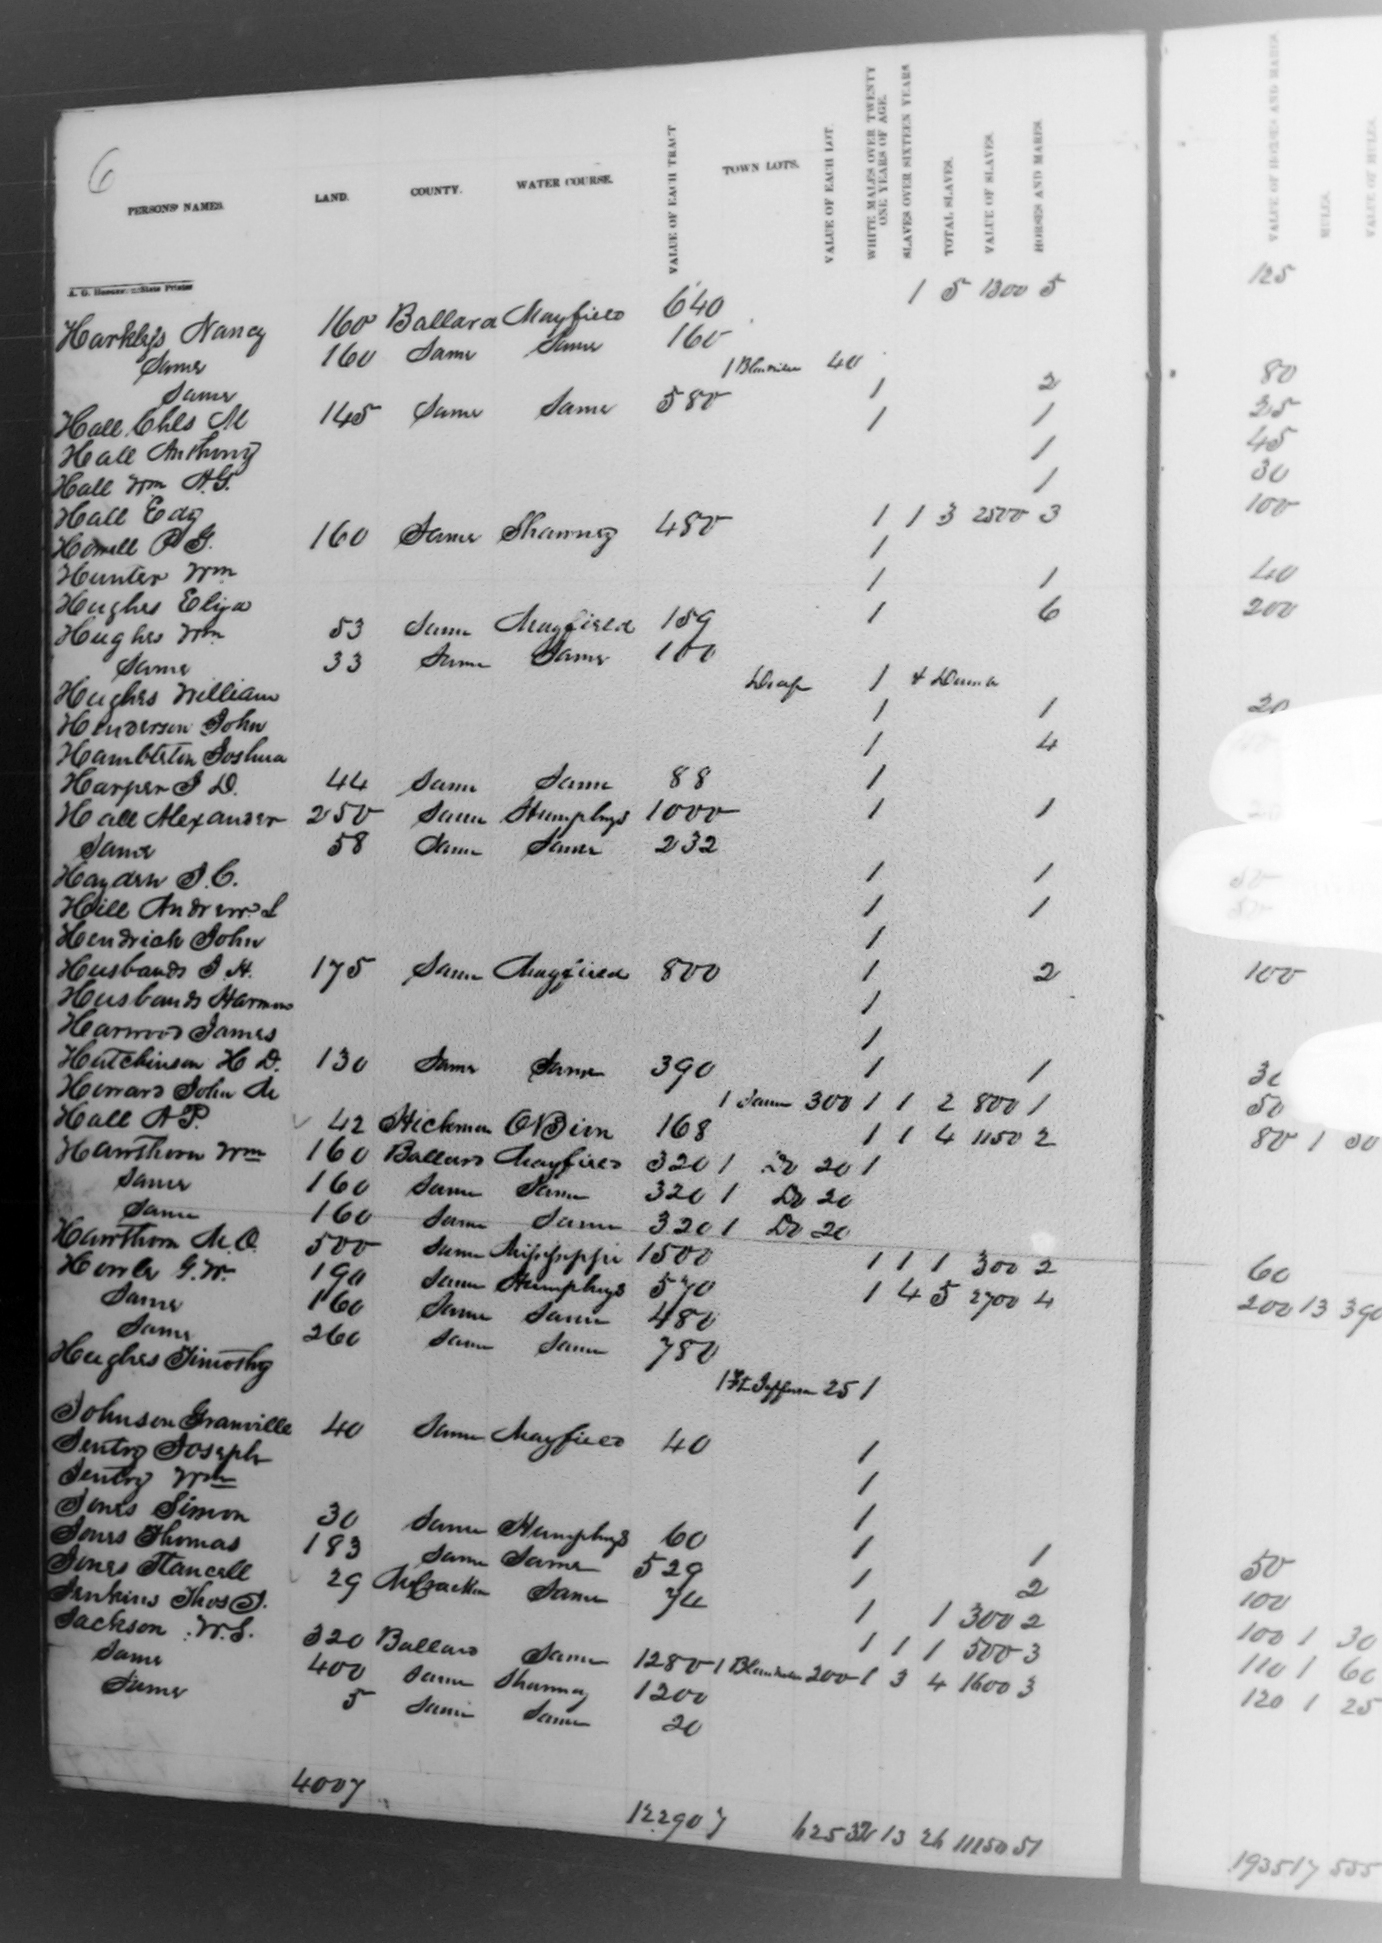 6
PERSONS' NAMES. LAND. COUNTY. WATER COURSE. VALUE OF EACH TRACT TOWN LOTS. VALUE OF EACH LOT. WHITE MALES OVER TWENTY ONE YEARS OF AGE. SLAVES OVER SIXTEEN YEARS TOTAL SLAVES. VALUE OF SLAVES. HORSES AND MARES. VALUE OF HORSES AND MARES. MULES. VALUE OF MULES.
Nancy 160 Ballard Mayfield 640 1 5 1300 5 125
Same 160 Same Same 160
Same 1 40
Hall Chls M 145 Same Same 580 1 2 80
Hall Anthony 1 1 25
Hall Wm A.G. 1 45
Hall Edy 1 30
Howell P G. 160 Same Shawney 480 1 1 3 2500 3 100
Hunter Wm 1
Hughes Eliza 1 1 40
Hughes Wm 53 Same Mayfield 159 1 6 200
Same 33 Same Same 100
Hughes William Deaf 1 & Dumb
Henderson John 1 1 20
Hambleton Joshua 1 4
Harper J D. 44 Same Same 88 1
Hall Alexander 250 Same Humphys 1000 1 1
Same 58 Same Same 232
Hayden J. C. 1 1
Hill Andrew L 1 1
Hendrick John 1
Husbands J H. 175 Same Mayfield 800 1 2 100
Husbands Harmon 1
Harwood James 1
Hutchinson H D. 130 Same Same 390 1 1
Howard John M 1 Same 300 1 1 2 800 1 50
Hall A P. 42 Hickman OBion 168 1 1 4 1150 2 80 1
Hawthorn Wm 160 Ballard Mayfield 320 1 Do 20 1
Same 160 Same Same 320 1 Do 20
Same 160 Same Same 320 1 Do 20
Hawthorn M. O. 500 Same Mississippi 1500 1 1 1 300 2 60
G. W. 190 Same Humphys 570 1 4 5 2700 4 200 13 390
Same 160 Same Same 480
Same 260 Same Same 780
Hughes Timothy 1 Ft Jefferson 25 1
Johnson Granville 40 Same Mayfield 40 1
Jentry Joseph 1
Jentry Wm 1
Jones Simon 30 Same Humphys 60 1 1 50
Jones Thomas 183 Same Same 529 1 2 100
Jones Stancell 29 McCracken Same 1 1 300 2 100 1 30
Jenkins Thos J. 1 1 1 500 3 110 1 60
Jackson W.S. 320 Ballard Same 1280 1 200 1 3 4 1600 3 120 1 25
Same 400 Same Shawney 1200
Same 5 Same Same 20
4007 12290 7 625 32 13 26 11150 51 1935 17 555